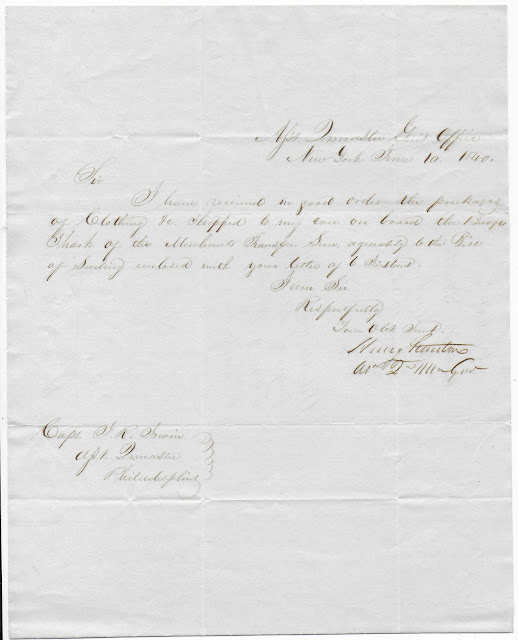 Asst. Qrmaster Genls Office
New York June 10. 1840.
Sir
I have received in good order the packages
of Clothing &c. Shipped to my care on board the Barge
Shark of the Merchants Transpn Line, agreeably to the Bill
of Lading enclosed with your letter of 6 Instant.
I am Sir
Respectfully
Your Obt. Servt.
Henry Stanton
Asst Q M Gen
Capt. J. R. Irwin
Asst. Qrmaster
Philadelphia